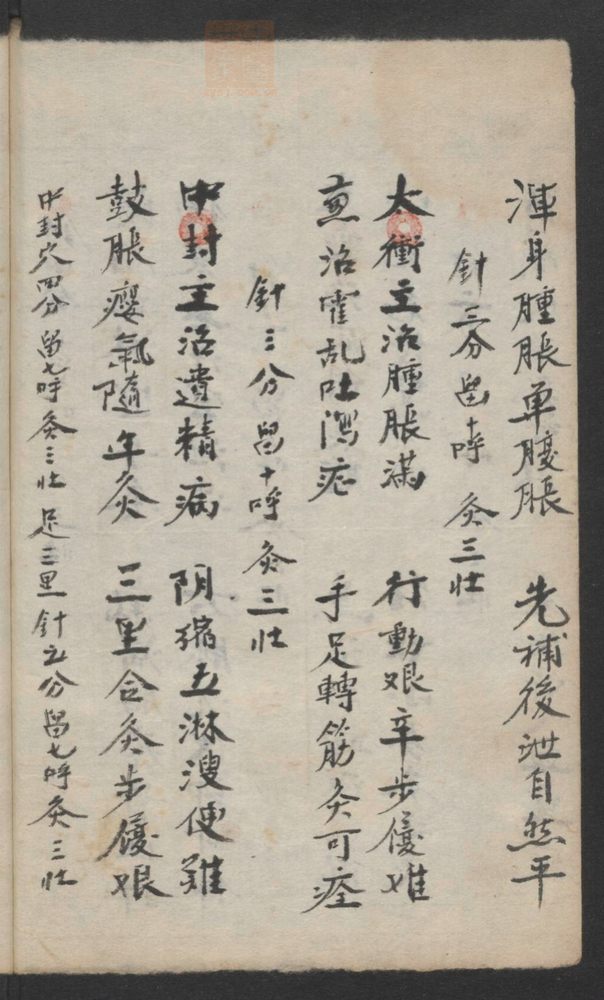 渾身腫脹單腹脹 先補後泄自然平
針三分留十呼 灸三壯
太衝主治腫脹滿 行動艰辛步履难
兼治霍乱吐瀉症 手足轉筋灸可痊
針三分留十呼灸三壯
中封主治遺精病 阴縮五淋溲便難
鼓脹癭氣隨年灸 三里合灸步履艰
中封穴四分留七呼灸三壯 足三里針五分留七呼灸三壯